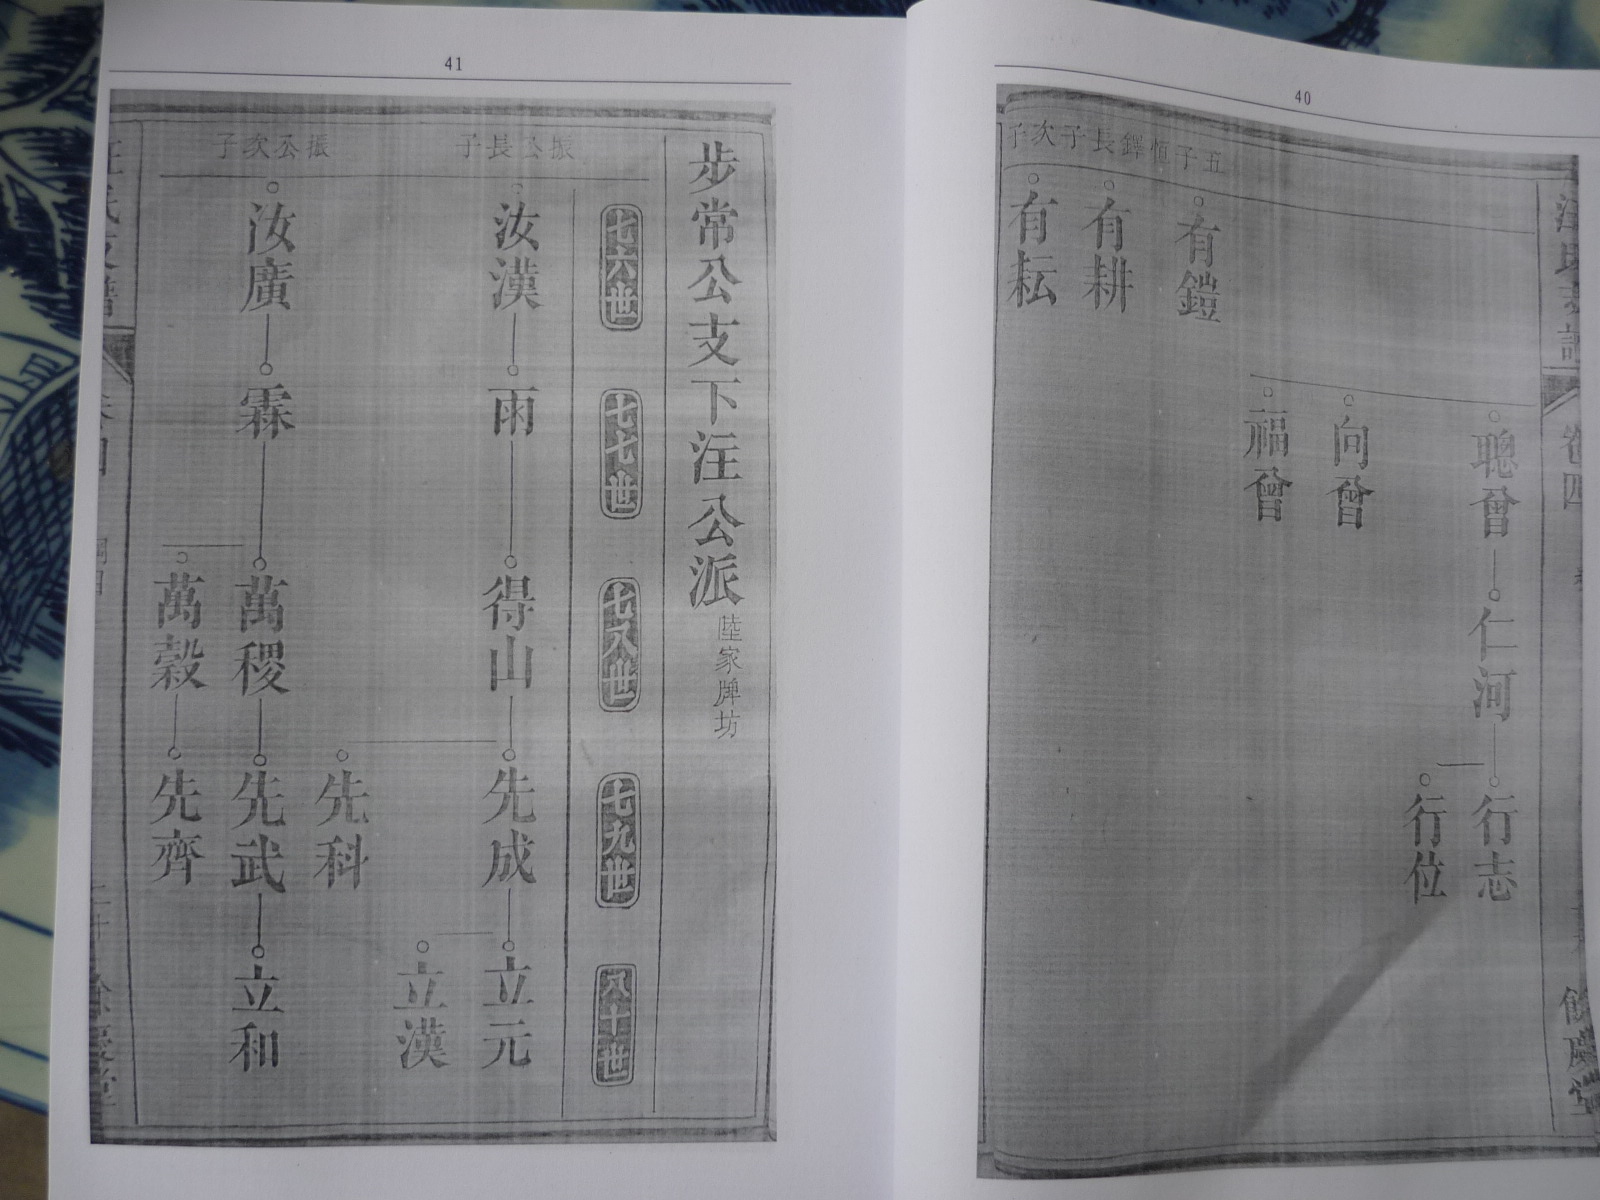 40
汪氏支譜
卷四
餘慶堂
聰曾
仁河
行志
行位
向曾
福曾
五子恒鐸長子次子
有鎧
有耕
有耘
41
步常公支下注公派 陸家牌坊
七六世
七七世
七八世
七九世
八十世
振公長子
汝漢
雨
得山
先成
立元
立漢
先科
振公次子
汝廣
霖
萬稷
先武
立和
萬穀
先齊